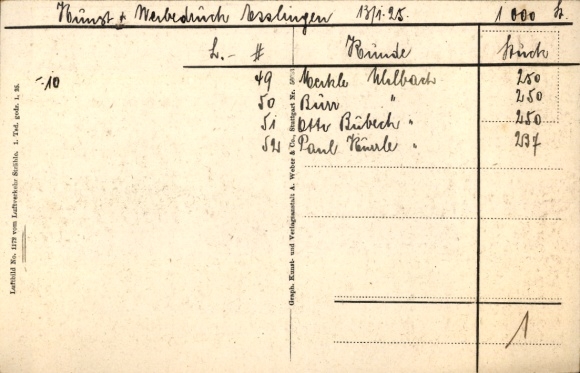 Kunst & Werbedruck Esslingen 13/1.25. 1 000 St.
L.- # Kunde Stück
-.10 49 Merkle Uhlbach 250
50 Bürr " 250
51 Otto Bubeck " 250
52 Paul " 237
1
Luftbild No. 1178 vom Luftverkehr Strähle. 1. Tsd. gedr. 1. 25.
Graph. Kunst- und Verlagsanstalt A. Weber & Co., Stuttgart Nr.